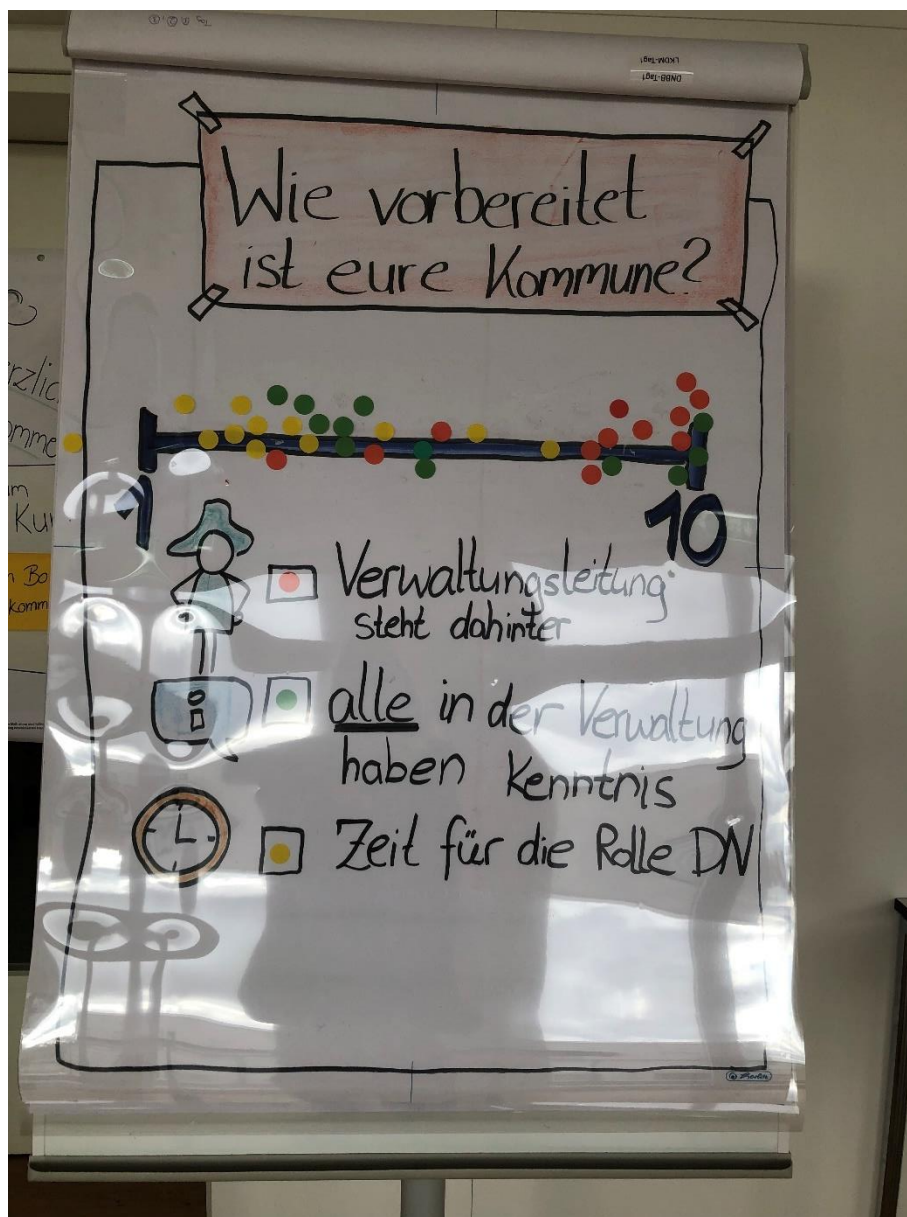 LKDM-Tag1
DNBB-Tag1
Wie vorbereitet
ist eure Kommune?
1
10
Verwaltungsleitung
steht dahinter
alle in der Verwaltung
haben Kenntnis
Zeit für die Rolle DN